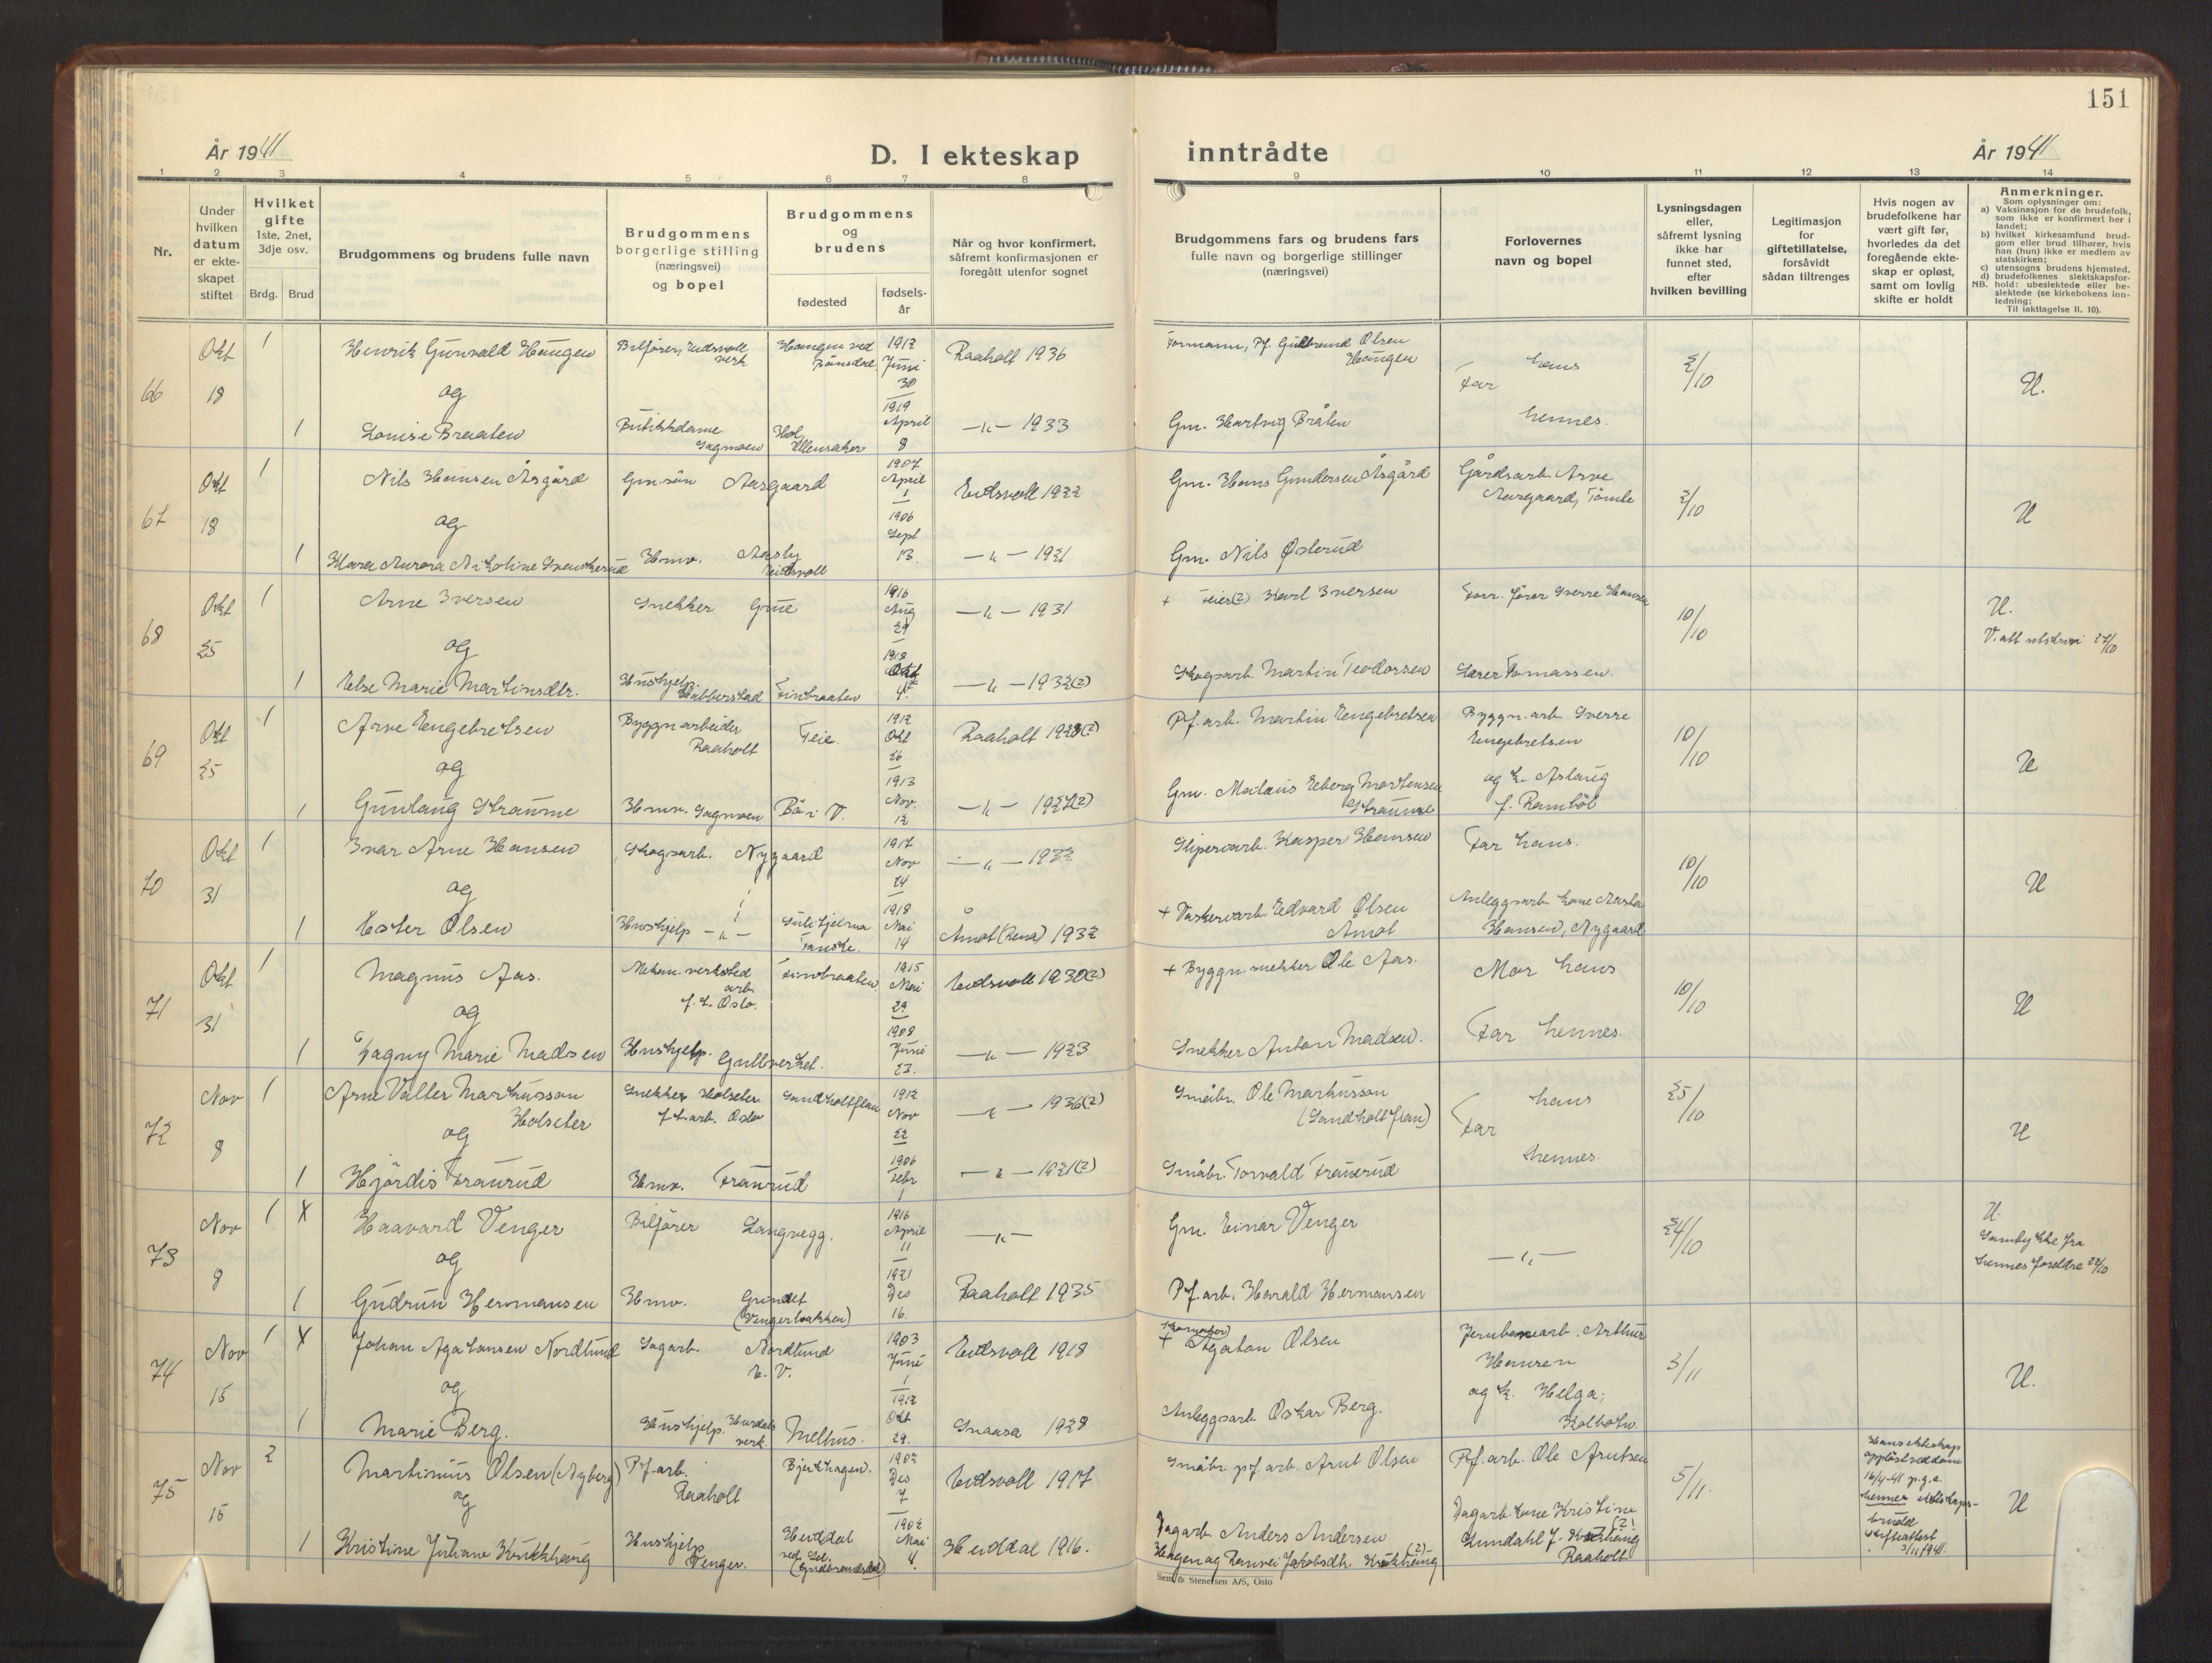 151
År 1941
D. I ekteskap
inntrådte
År 1941
1 2 3 4 5 6 7 8 9 10 11 12 13 14
Nr.
Under
hvilken
datum
er ekte-
skapet
stiftet
Hvilket
gifte
1ste, 2net,
3dje osv.
Brdg. Brud
Brudgommens og brudens fulle navn
Brudgommens
borgerlige stilling
(næringsvei)
og bopel
Brudgommens
og
brudens
fødested
fødsels-
år
Når og hvor konfirmert,
såfremt konfirmasjonen er
foregått utenfor sognet
Brudgommens fars og brudens fars
fulle navn og borgerlige stillinger
(næringsvei)
Forlovernes
navn og bopel
Lysningsdagen
eller,
såfremt lysning
ikke har
funnet sted,
efter
hvilken bevilling
Legitimasjon
for
giftetillatelse,
forsåvidt
sådan tiltrenges
Hvis nogen av
brudefolkene har
vært gift før,
hvorledes da det
foregående ekte-
skap er opløst,
samt om lovlig
skifte er holdt
Anmerkninger.
Som oplysninger om:
a) Vaksinasjon for de brudefolk,
som ikke er konfirmert her i
landet;
b) hvilket kirkesamfund brud-
gom eller brud tilhører, hvis
han (hun) ikke er medlem av
statskirken;
c) utensogns brudens hjemsted.
d) brudefolkenes slektskapsfor-
NB. hold: ubeslektede eller be-
slektede (se kirkebokens inn-
ledning;
Til iakttagelse II. 10).
66
Okt
18
1
Henrik Gunvald Haugen
Bilfører, Eidsvoll
verk
Haugen ved
1912
Juni
30
Raaholt 1936
Formann, Pf. Gulbrand Olsen
Haugen
Far hans
2/10
U.
og
1
Louise Braaten
Butikkdame
Sagmoen
Hol,
Ullensaker
1919
April
8
—"— 1933
Gm. Hartvig Bråten
hennes.
67
Okt
18
1
Nils Hansen Åsgård
Gm. søn Aasgaard
1907
April
1
Eidsvoll 1922
Gm. Hans Gundersen Åsgård
Gårdsarb. Arve
Aasgaard, Tømte
2/10
U
og
1
Mara Aurora Nikoline
Hmv.
Aasly
Eidsvoll
1906
Sept
13.
—"— 1921
Gm. Nils Østerud
68
Okt
25
1
Arne Iversen
Snekker Grue
1916
Aug
29
—"— 1931
+ Feier(?) Karl Iversen
Forr. fører Sverre Hansen
10/10
U.
V. att utskrevi 27/10
og
1
Else Marie Martinsdtr.
Hushjelp.
Habberstad Finbraaten
1918
Okt
4.
—"— 1932(?)
Skogsarb. Martin Teodorsen
Lærer Tomassen.
69
Okt
25
1
Arne Engebretsen
Byggn. arbeider
Raaholt
Feie.
1912
Okt
26
Raaholt 1928(?)
Pf. arb. Martin Engebretsen
Byggn. arb. Sverre
Engebretsen
og k. Aslaug
f. Rambøl
10/10
U
og
1
Gunlaug Straume
Hmv. Sagmoen
Bø i V.
1913
Nov.
12
—"— 1927(?)
Gm. Matæus Eeberg Mortensen
Straume
70
Okt
31
1
Ivar Arne Hansen
Skogsarb. Nygaard
1917
Nov
24
—"— 1932
Sliperarb. Kasper Hansen
Far hans.
10/10
U
og
1
Ester Olsen
Hushjelp —"—
Sulitjelma
Fauske.
1918
Mai
14
Åmot (Rena) 1932
+ Vaskerarb. Edvard Olsen
Åmot
Anleggsarb. kone Aasta
Hansen, Nygaard
71
Okt
31
1
Magnus Aas.
Mekan. verksted
arb.
f.t. Oslo.
Finbraaten.
1915
Mai
29
Eidsvoll 1930(?)
+ Byggn. snekker Ole Aas.
Mor hans
10/10
U
og
1
Dagny Marie Madsen
Hushjelp. Gullverket.
1908
Juni
27.
—"— 1923
Snekker Anton Madsen.
Far hennes.
72
Nov
8
1
Arne Valter Markusson
Holseter
Snekker Holseter
f.t. arb. Oslo
1912
Nov
22
—"— 1936(?)
Småbr. Ole Markusson
Far hans
25/10
U
og
1
Hjørdis Fraurud
Hmv. Fraurud
1906
Febr
1
—"— 1921(?)
Småbr. Torvald Fraurud
hennes.
73
Nov
8
1 X
Haavard Venger
Bilfører Langvegg.
1916
April
11
—"—
Gm. Einar Venger
—"—
24/10
U.
Samtykke fra
hennes foreldre 22/10
og
1
Gudrun Hermansen
Hmv.
Grindet
(Vengerbakken)
1921
Des
16.
Raaholt 1935
Pf. arb. Harald Hermansen
74
Nov
15
1 X
Johan Agatonsen Nordlund
Sagarb. Nordlund
E. V.
1903
Juni
1
Eidsvoll 1918
+ Agaton Olsen
Jernbanearb. Arthur
Hansen
og k. Helga;
3/11
U.
og
1
Marie Berg.
Hushjelp. Hurdals
verk.
Melhus.
1912
Okt
29.
Snaasa 1928
Anleggsarb. Oskar Berg.
75
Nov
15
2
Martinius Olsen (Nyberg)
Pf. arb.
Raaholt
Bjerkhagen.
1902
Des
7
Eidsvoll 1917
Småbr. pf. arb. Arnt Olsen
Pf. arb. Ole Arntsen
5/11.
Hans ekteskap
oppløst ved dom
16/4-41 p.g.a.
hennes ekteskaps-
brudd
Skifteattest
3/11 1941.
U
og
1
Kristine Juliane Krukhaug
Hushjelp
Venger.
Heidal
(Gudbrandsdal)
1902
Mai
4.
Heidal 1916.
Dagarb. Anders Andersen
Haugen og Ranvei Jakobsdtr. Krukhaug (?)
Dagarb. kone Kristine
Lundahl f. Krukhaug (?)
Raaholt.
Sem & Stenersen A/S, Oslo